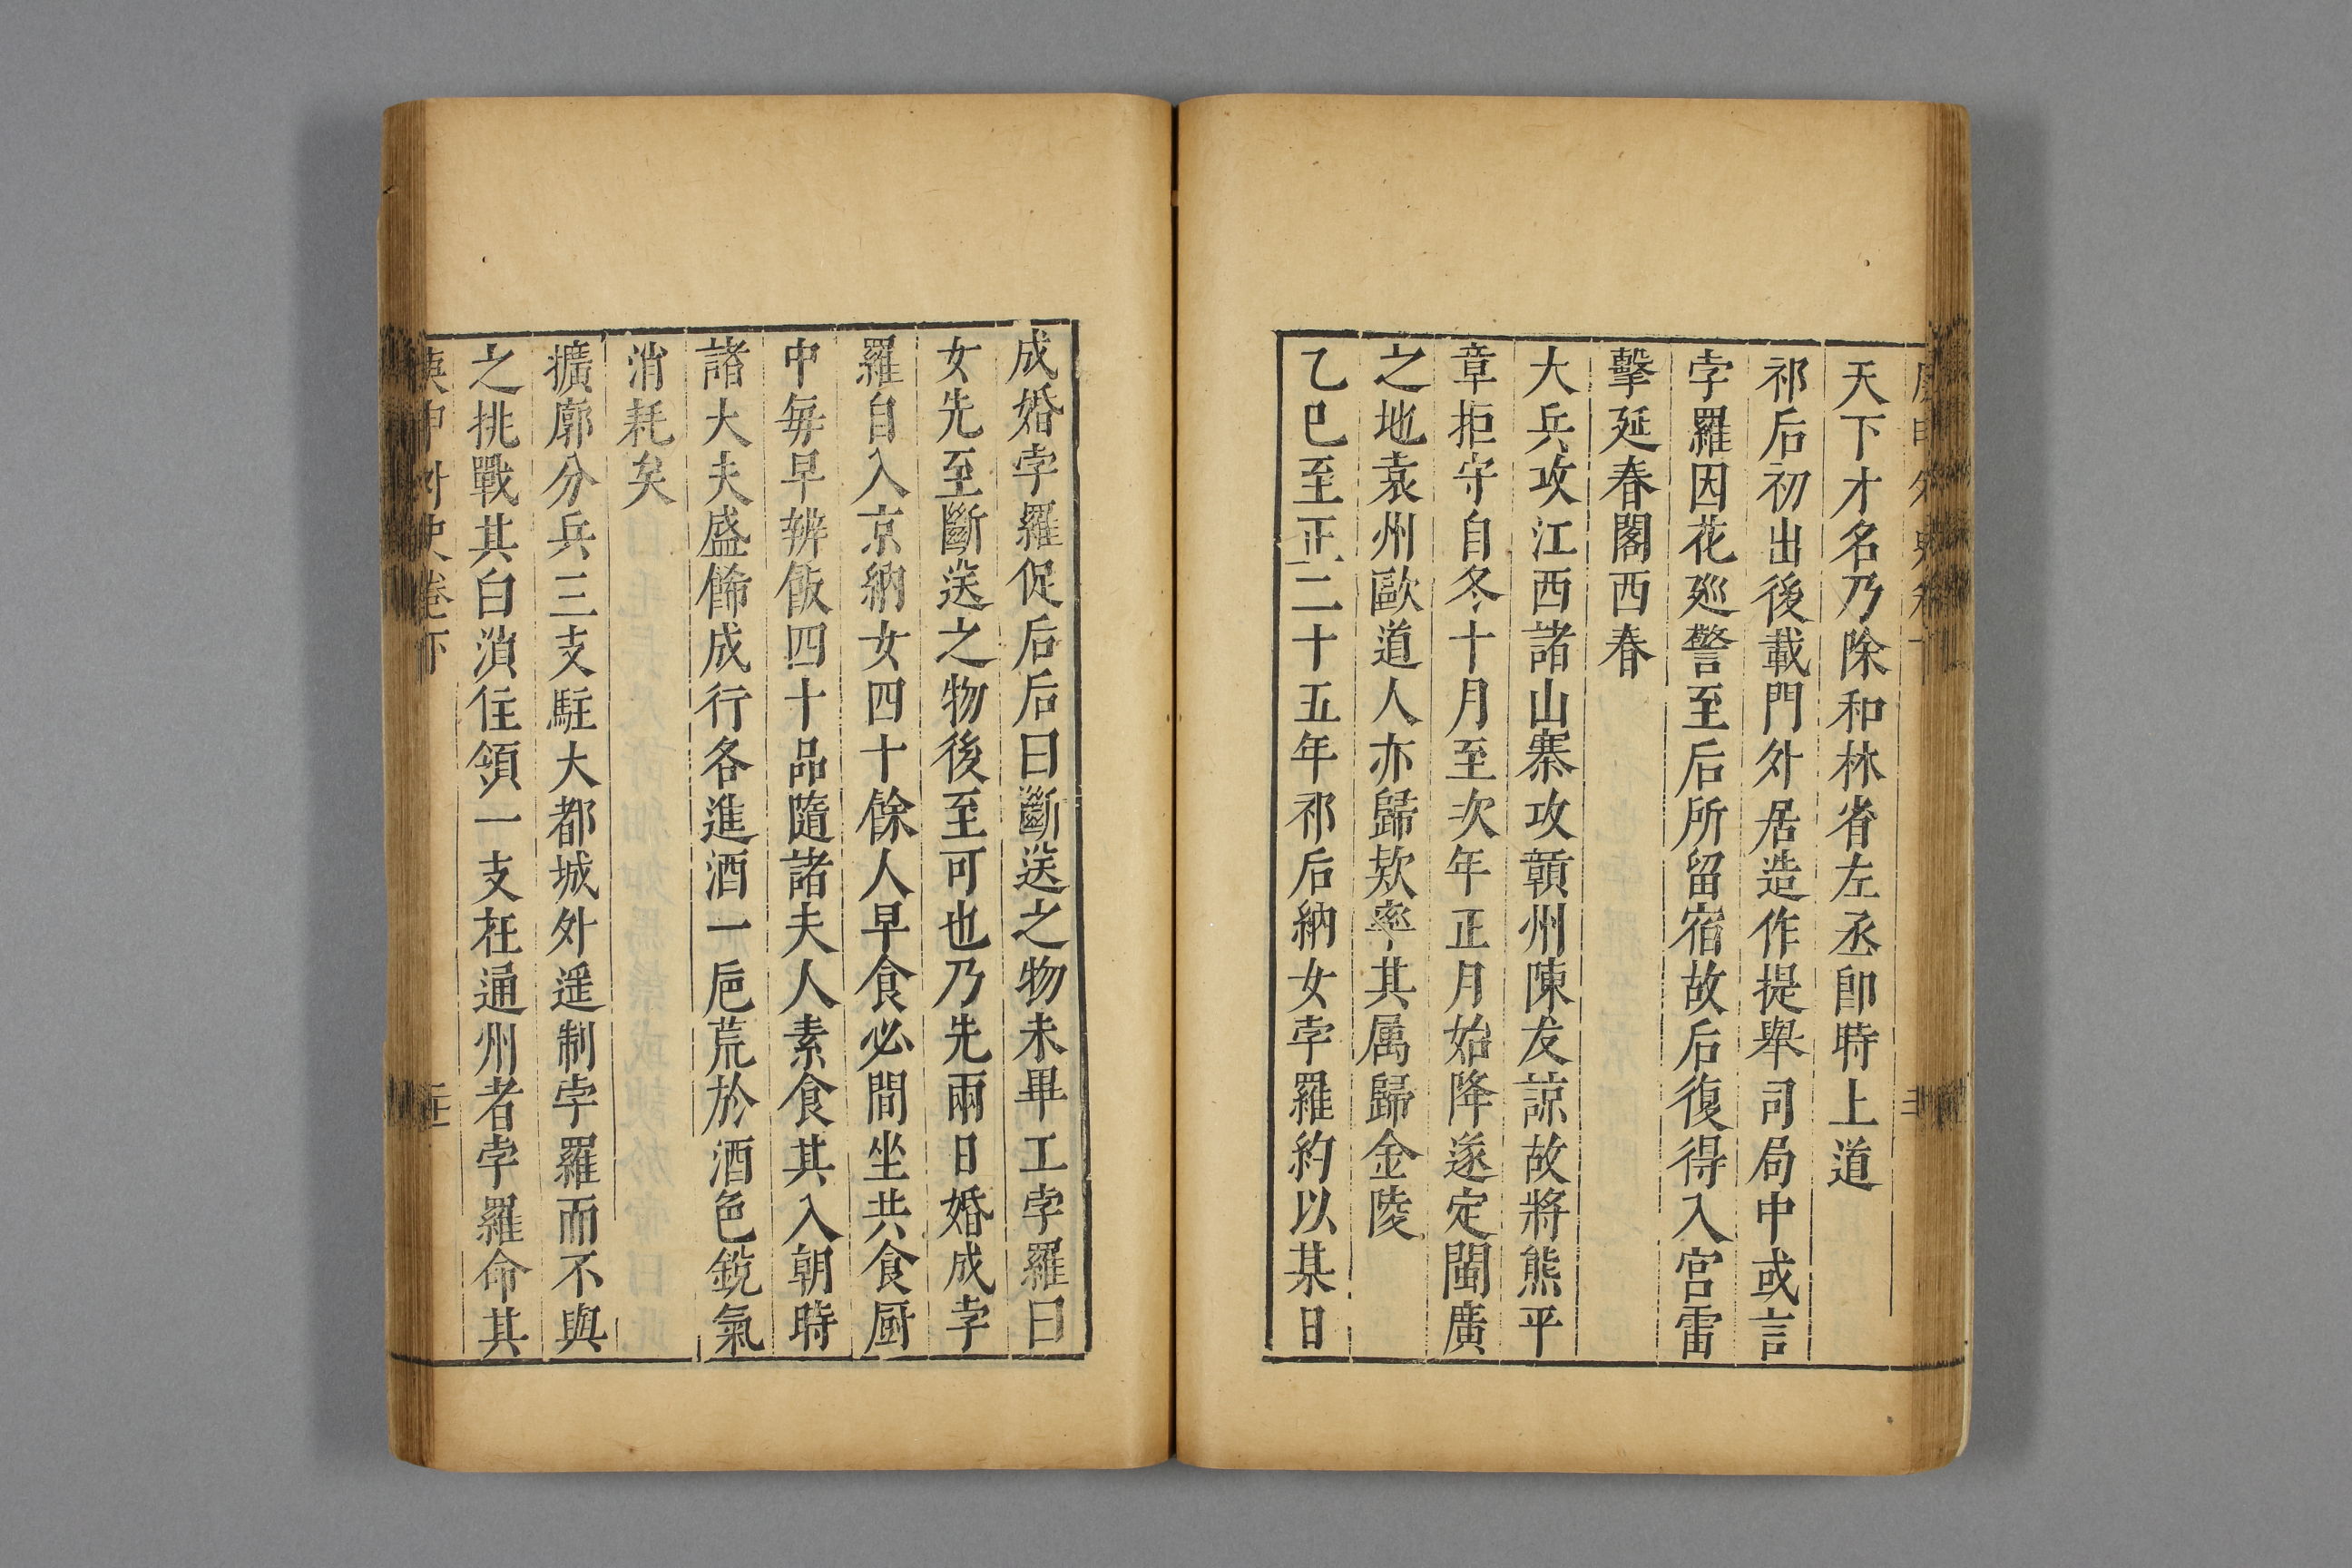 天下才名乃除和林省左丞即時上道
祁后初出後載門外居造作提舉司局中或言
孛羅因花廵警至后所留宿故后復得入宮雷
擊延春閣西春
大兵攻江西諸山寨攻贑州陳友諒故將熊平
章拒守自冬十月至次年正月始降遂定閩廣
之地袁州歐道人亦歸欵率其属歸金陵
乙巳至正二十五年祁后納女孛羅約以某日
成婚孛羅促后后曰斷送之物未畢工孛羅曰
女先至斷送之物後至可也乃先兩日婚成孛
羅自入京納女四十餘人早食必間坐共食厨
中每早辨飯四十品隨諸夫人素食其入朝時
諸大夫盛餙成行各進酒一巵荒於酒色銳氣
消耗矣
擴廓分兵三支駐大都城外遥制孛羅而不與
之挑戰其白湏住領一支在通州者孛羅命其
庚申外史卷下